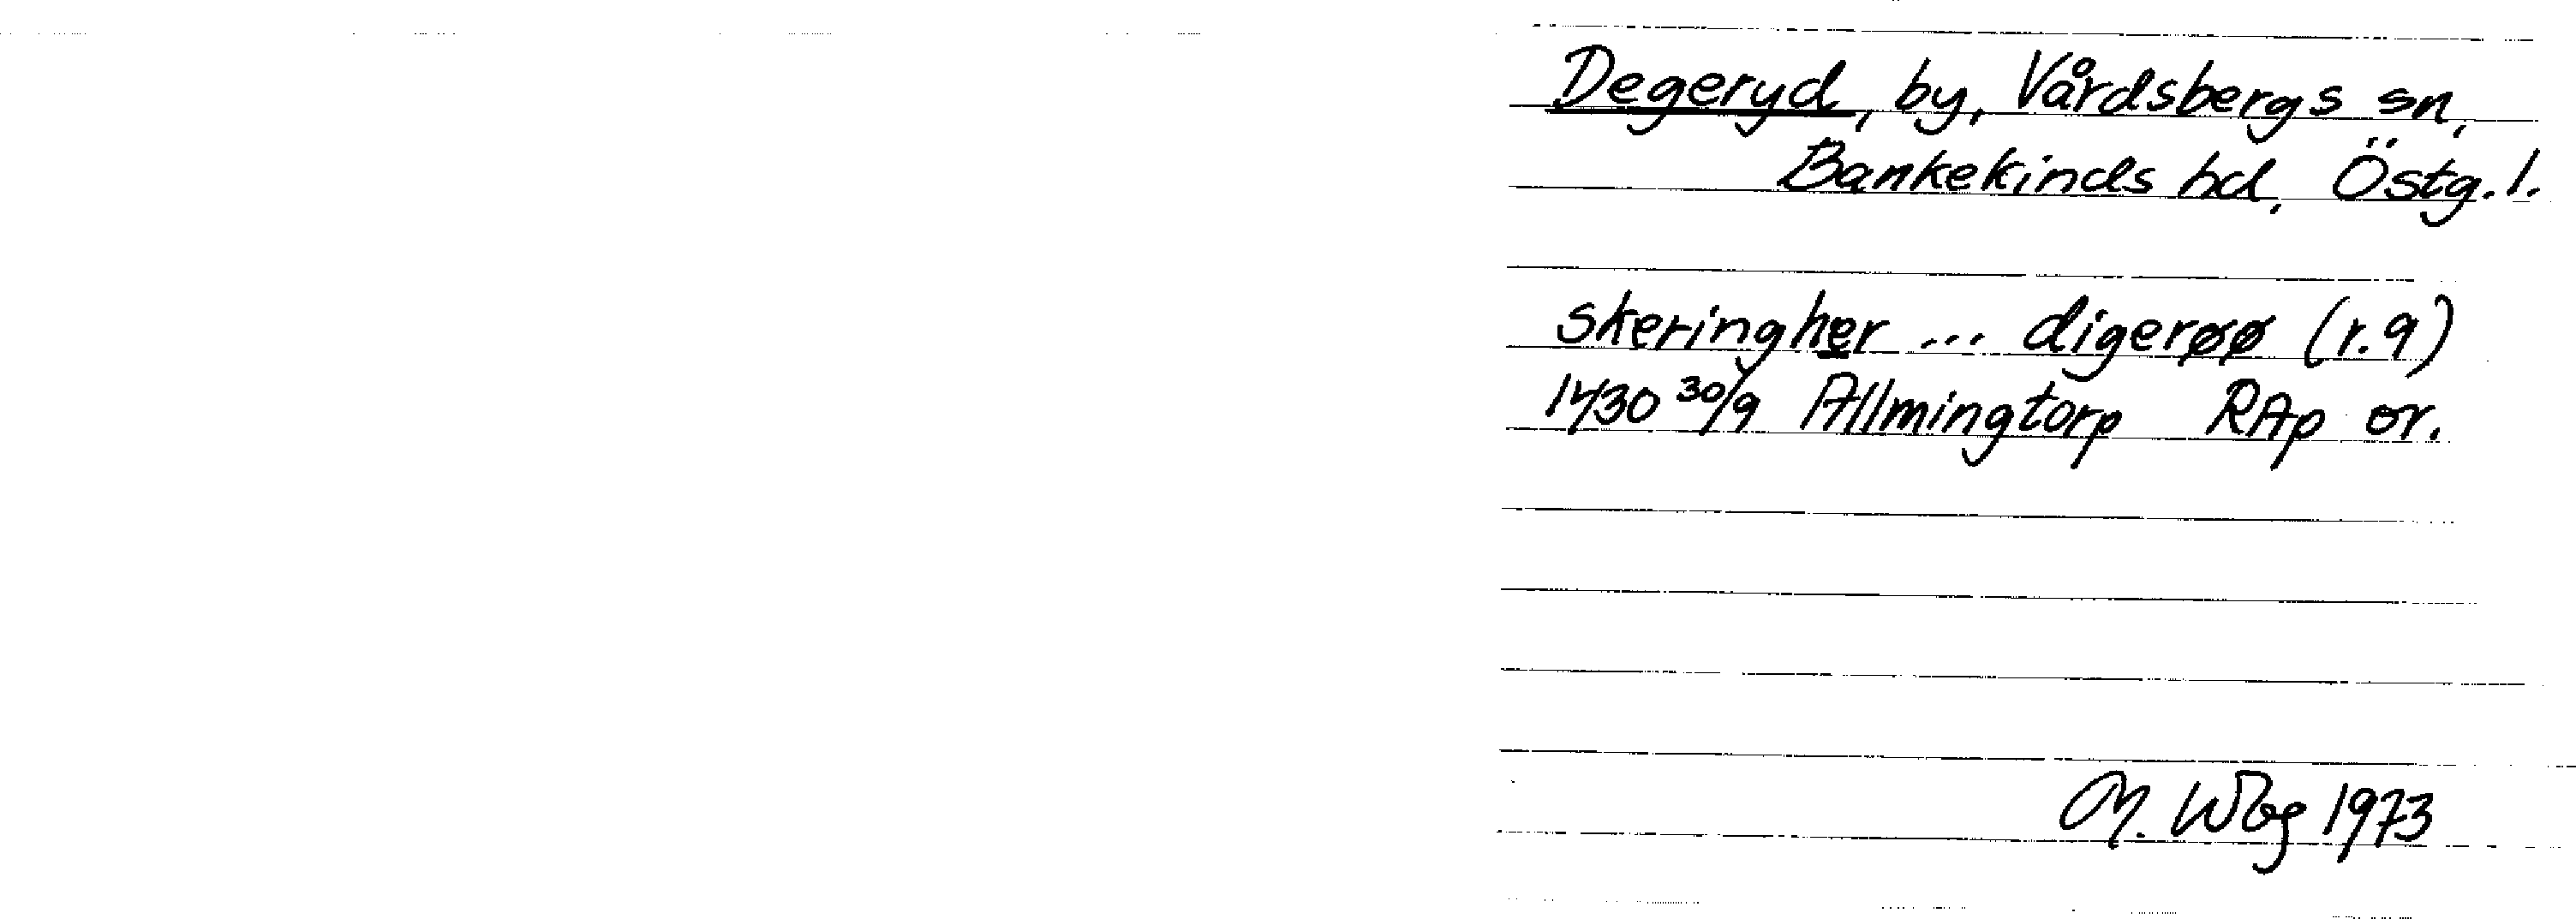 Degeryd, by, Vårdsbergs sn,
Bankekinds hd, Östg. l.
skeringher ... digerøø (r. 9)
1430 30/9 Allmingtorp RAp or.
M. Wbg 1973